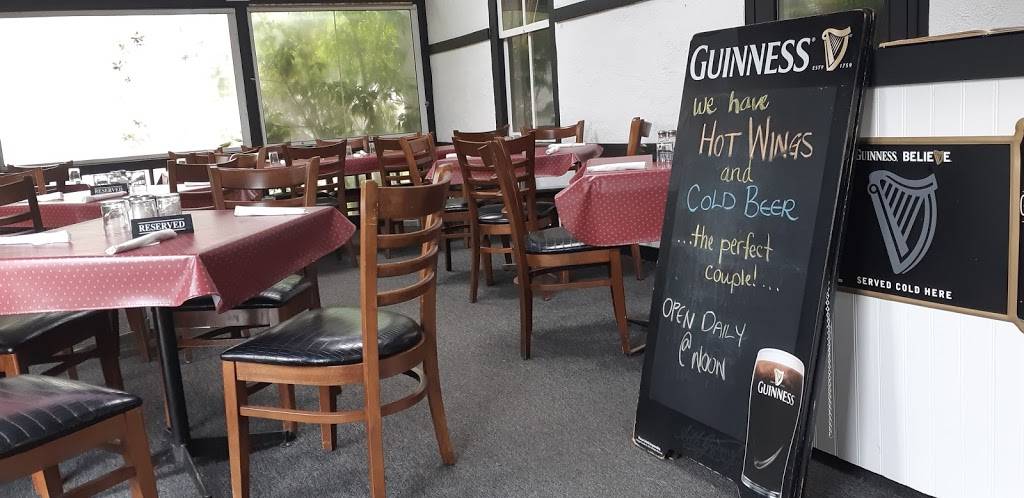 GUINNESS®
ESTD 1759
We have
HOT WINGS
and
COLD BEER
...the perfect
couple!...
OPEN DAILY
@ NOON
GUINNESS
GUINNESS BELIEVE
SERVED COLD HERE
RESERVED
RESERVED